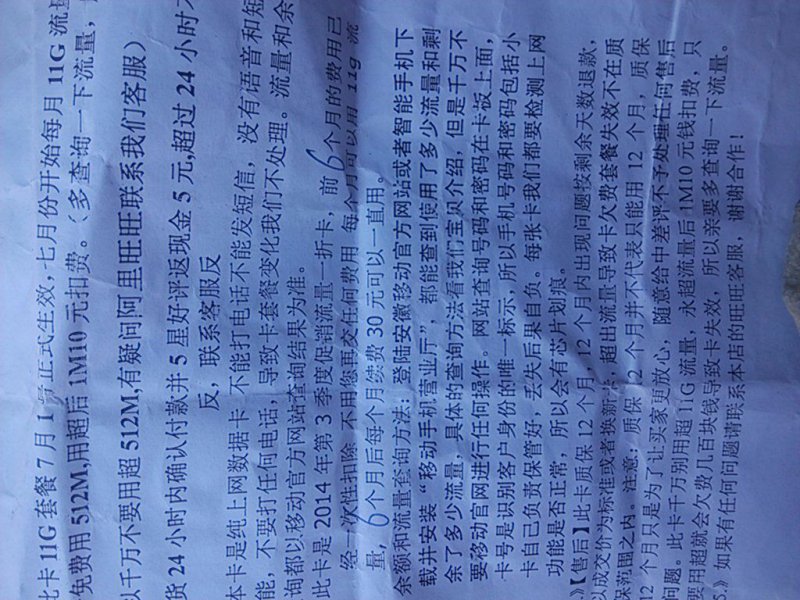 此卡 11G 套餐 7 月 1 号正式生效,七月份开始每月 11G 流量
免费用 512M,用超后 1M10 元扣费。(多查询一下流量,
以千万不要用超 512M,有疑问阿里旺旺联系我们客服)
货 24 小时内确认付款并 5 星好评返现金 5 元,超过 24 小时不
反,联系客服反
本卡是纯上网数据卡 不能打电话不能发短信,没有语音和短
能,不要打任何电话,导致卡套餐变化我们不处理。流量和余
询都以移动官方网站查询结果为准。
此卡是 2014 年第 3 季度促销流量一折卡,前 6 个月的费用已
经一次性扣除 不用您再交任何费用 每个月可以用 11g 流
量,6 个月后每个月续费 30 元可以一直用。
余额和流量查询方法:登陆安徽移动官方网站或者智能手机下
载并安装“移动手机营业厅”,都能查到使用了多少流量和剩
余了多少流量,具体的查询方法看我们宝贝介绍,但是千万不
要移动官网进行任何操作。网站查询号码和密码在卡板上面,
卡号是识别客户身份的唯一标示,所以手机号码和密码包括小
卡自己负责保管好,丢失后果自负。每张卡我们都要检测上网
功能是否正常,所以会有芯片划痕。
》【售后】此卡质保 12 个月,12 个月内出现问题按剩余天数退款,
以成交价为标准或者换新卡,超出流量导致卡欠费套餐失效不在质
保范围之内。注意:质保 12 个月并不代表只能用 12 个月,质保
12 个月只是为了让买家更放心,随意给中差评不予处理任何售后
问题。此卡千万别用超 11G 流量,永超流量后 1M10 元钱扣费,只
要用超就会欠费几百块钱导致卡失效,所以亲要多查询一下流量。
5.》如果有任何问题请联系本店的旺旺客服,谢谢合作!